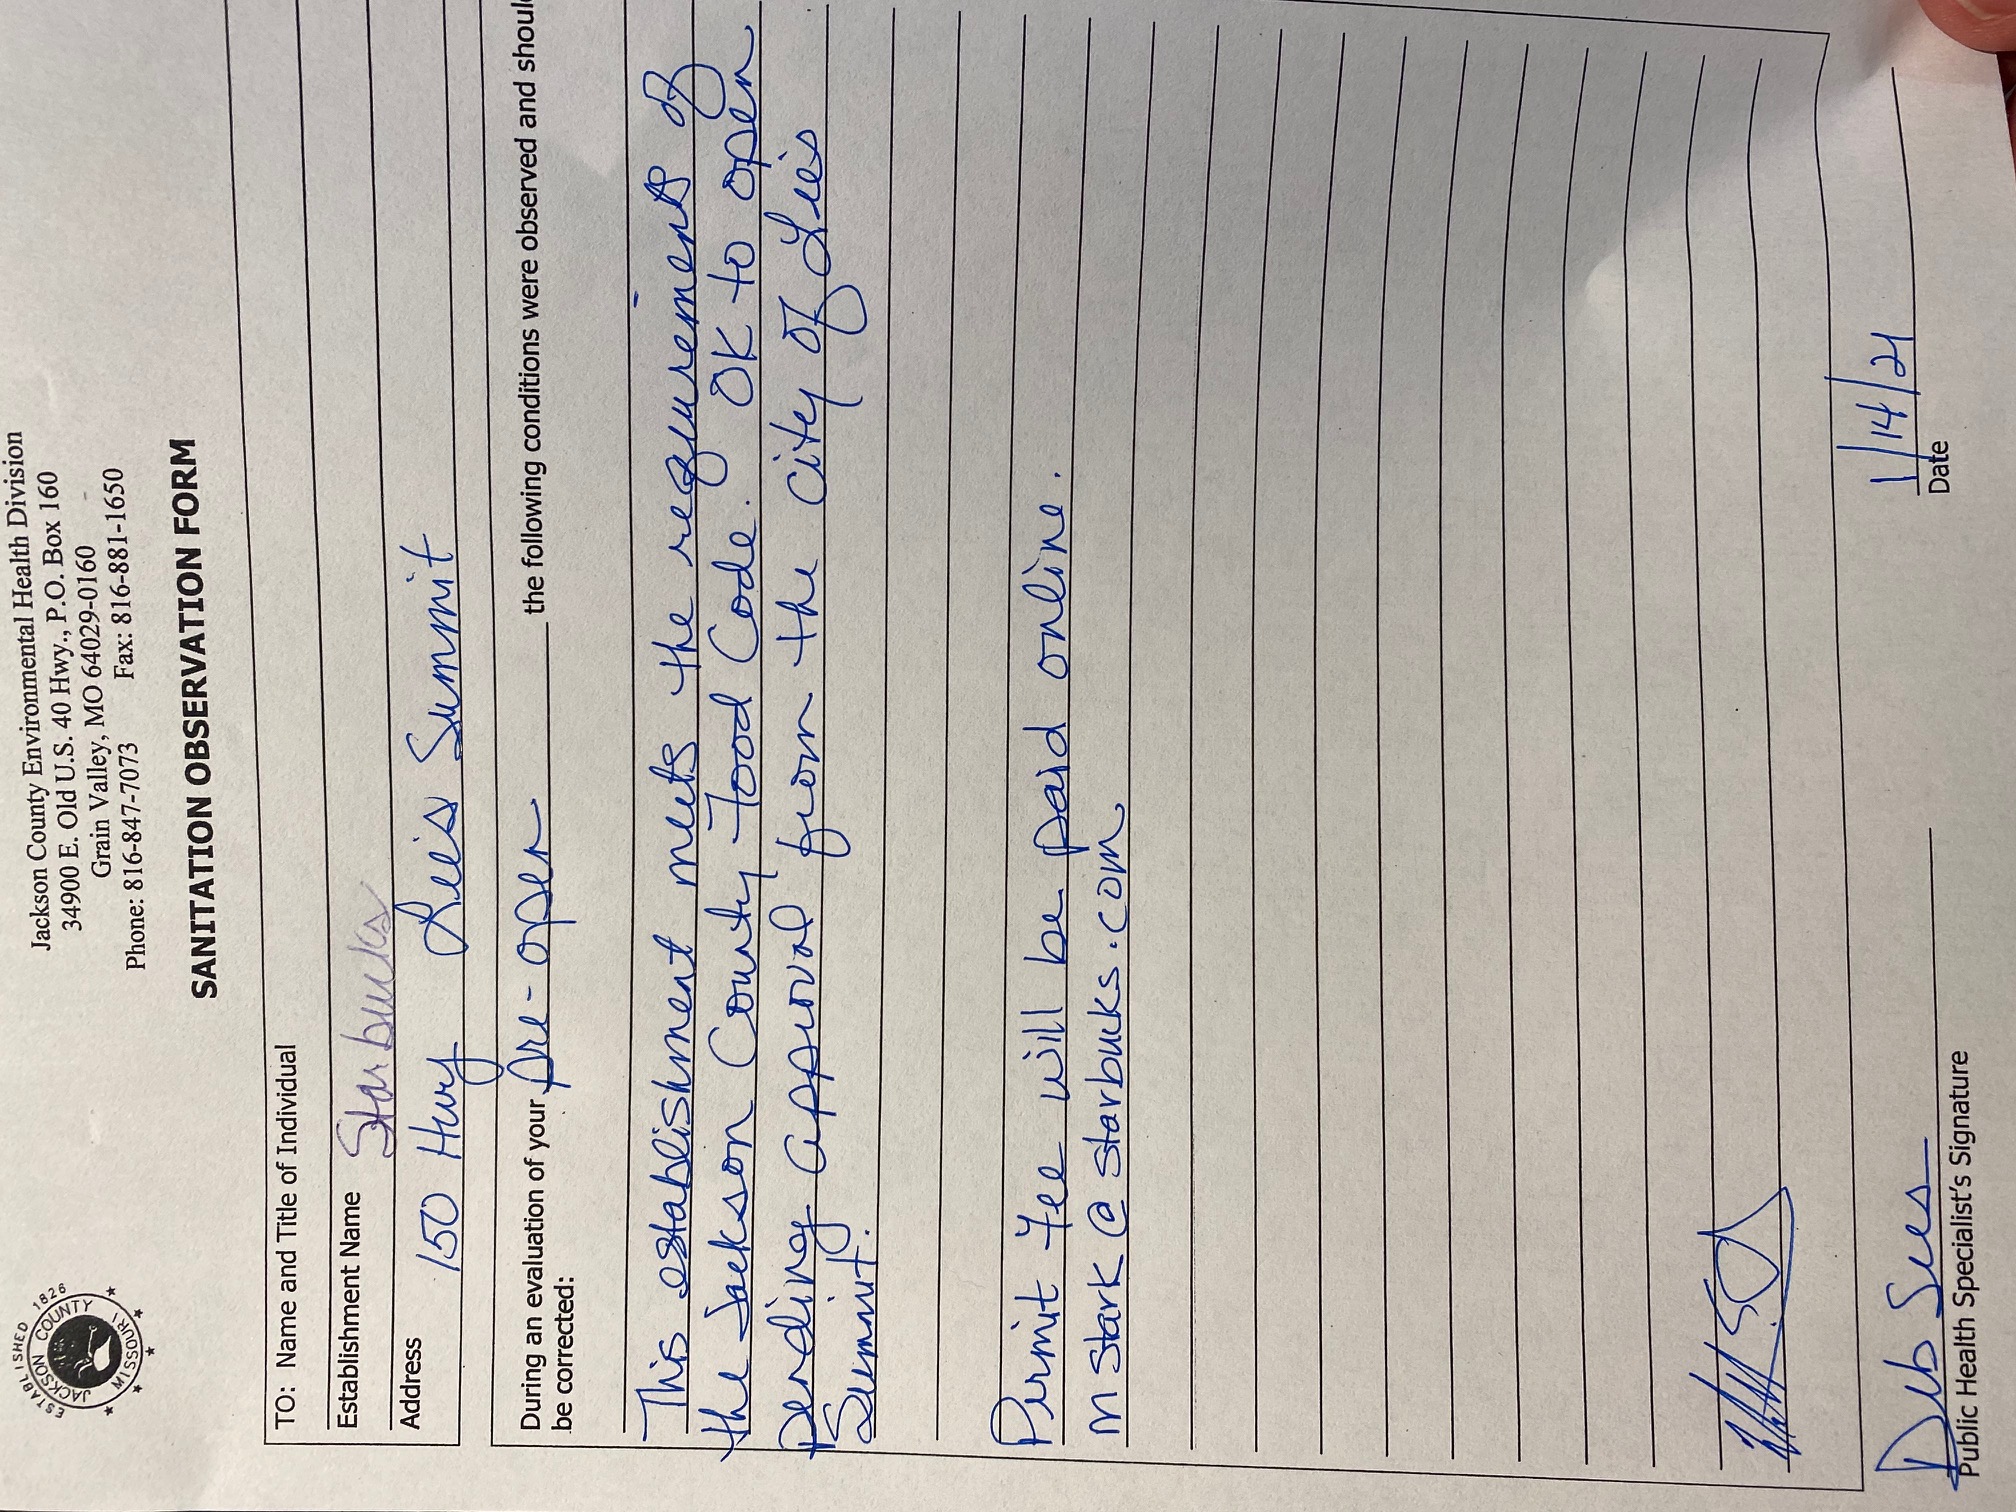 ESTABLISHED 1826
JACKSON COUNTY
MISSOURI
Jackson County Environmental Health Division
34900 E. Old U.S. 40 Hwy., P.O. Box 160
Grain Valley, MO 64029-0160
Phone: 816-847-7073 Fax: 816-881-1650
SANITATION OBSERVATION FORM
TO: Name and Title of Individual
Establishment Name Starbucks
Address 150 Hwy Lee's Summit
During an evaluation of your pre-open the following conditions were observed and should
be corrected:
This establishment meets the requirements of
the Jackson County Food Code. OK to open
pending approval from the city of Lee's
Summit.
Permit fee will be paid online.
mstark@starbucks.com
Deb Sees
Public Health Specialist's Signature
1/14/21
Date